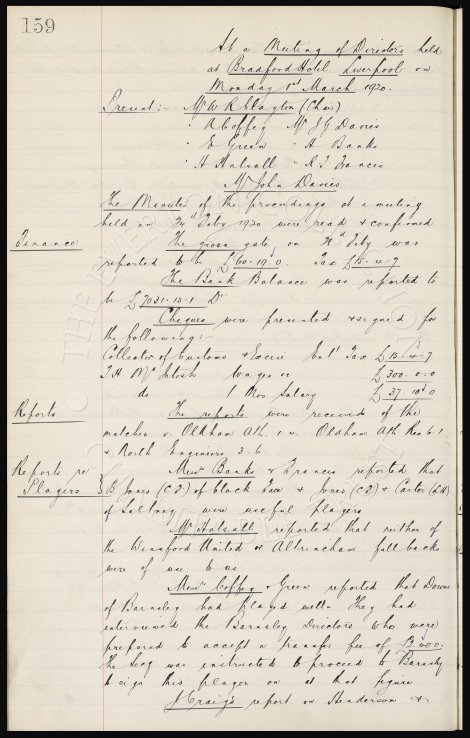 159
At a Meeting of Directors held
at Bradford Hotel Liverpool on
Monday 1st March 1920.
Present :- Mr W R Clayton (Chair)
" A Coffey Mr J G Davies
" E Green " H Banks
" H Halsall " R T Francis
Mr John Davies
The Minutes of the proceedings at a meeting
held on Feby 1920 were read & confirmed
Finance
The gross gate on Feby was
reported to be £60. 19. 0 Tax £15. 7
The Bank Balance was reported to
be £7031. 13. 1 Dr
Cheques were presented & signed for
the following :-
Collector of Customs & Excise Ent Tax £15. 7
T H McIntosh wages £300. 0. 0
do 1 Mos Salary £37. 10. 0
Reports
The reports were received of the
matches v Oldham Ath. Oldham Ath Res 6.1
v. North Engineers 3. 6
Reports re
Players
Messrs Banks & Francis reported that
B Jones of & Jones & Carter
of Saltney were useful players
Mr Halsall reported that neither of
the Winsford United or Altrincham full backs
were of use to us
Messrs Coffey & Green reported that Downs
of Barnsley had played well. They had
interviewed the Barnsley Directors who were
prepared to accept a transfer fee of
The Secy was instructed to proceed to Barnsley
to sign this player on at that figure
J Craig's report on Henderson &